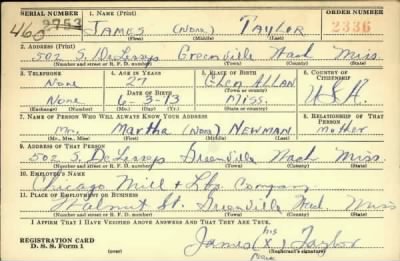 460
2753
1. NAME (Print)
ORDER NUMBER
2336
JAMES (None) TAYLOR
(First) (Middle) (Last)
2. ADDRESS (Print)
502 S. DeLesseps Greenville Wash Miss.
(Number and street or R. F. D. number) (Town) (County) (State)
3. TELEPHONE
4. AGE IN YEARS
5. PLACE OF BIRTH
6. COUNTRY OF CITIZENSHIP
None
27
Glen Allan
DATE OF BIRTH
None
6-3-13
Miss.
U.S.A.
(Exchange) (Number)
(Mo.) (Day) (Yr.)
(State or country)
7. NAME OF PERSON WHO WILL ALWAYS KNOW YOUR ADDRESS
8. RELATIONSHIP OF THAT PERSON
Mr. Martha (None) NEWMAN Mother
(Mr., Mrs., Miss) (First) (Middle) (Last)
9. ADDRESS OF THAT PERSON
502 S. DeLesseps Greenville Wash Miss.
(Number and street or R. F. D. number) (Town) (County) (State)
10. EMPLOYER'S NAME
Chicago Mill & Lbr Company
11. PLACE OF EMPLOYMENT OR BUSINESS
Walnut St. Greenville Wash Miss
(Number and street or R. F. D. number) (Town) (County) (State)
I AFFIRM THAT I HAVE VERIFIED ABOVE ANSWERS AND THAT THEY ARE TRUE.
REGISTRATION CARD
D. S. S. Form 1
his
James (X) Taylor
(Registrant's signature)